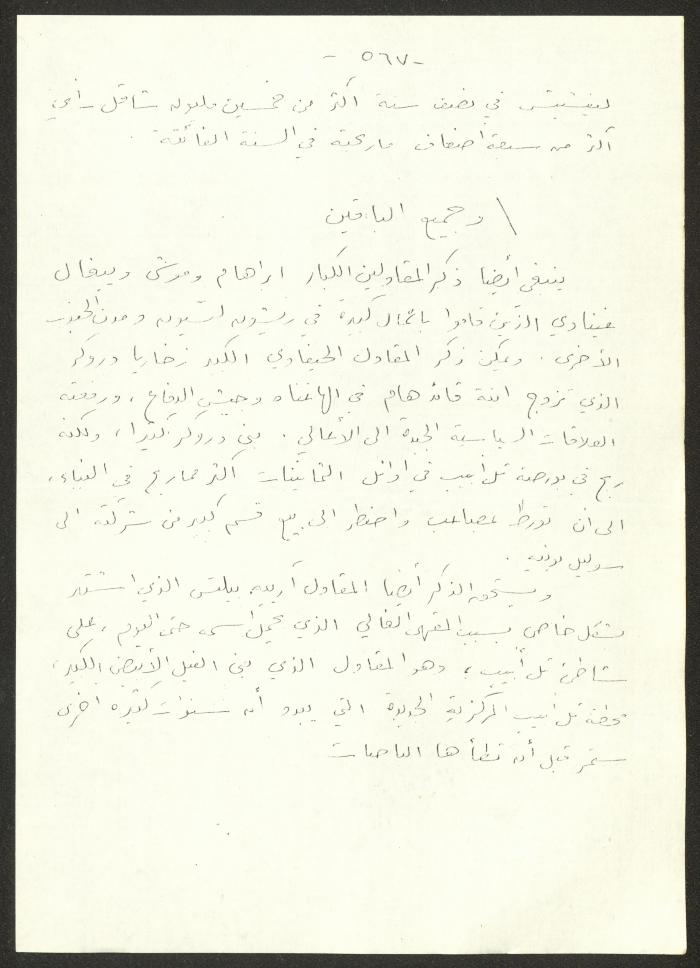 - ٥٦٧ -
ليفشيتس في نصف سنة اكثر من خمسين مليون شاقل - أي
اكثر من سبعة أضعاف ما ربحته في السنة الفائتة .
\ وجميع الباقين
ينبغي أيضا ذكر المقاولين الكبار ابراهام وموشي ويبغال
غينادي الذين قاموا باعمال كبيرة في ريشون لتسيون ومدن الجنوب
الأخرى . ويمكن ذكر المقاول الحيفاوي الكبير زخاريا دروكر
الذي تزوج ابنة قائد هام في الهاغناه وجيش الدفاع ، ورفعته
العلاقات السياسية الجيدة الى الأعالي . بنى دروكر كثيرا ، ولكنه
ربح في بورصة تل أبيب في اوائل الثمانينات اكثر مما ربح في البناء ،
الى ان تورط بمصاعب واضطر الى بيع قسم كبير من شركته الى
سوليل بونيه .
ويستحق الذكر أيضا المقاول آرييه بيلتس الذي اشتهر
بشكل خاص بسبب المقهى الغالي الذي يحمل اسمه حتى اليوم ، على
شاطئ تل أبيب ، وهو المقاول الذي بنى الفيل الأبيض الكبير ،
محطة تل أبيب المركزية الجديدة التي يبدو أن سنوات كثيرة اخرى
ستمر قبل أن تطأها الباصات